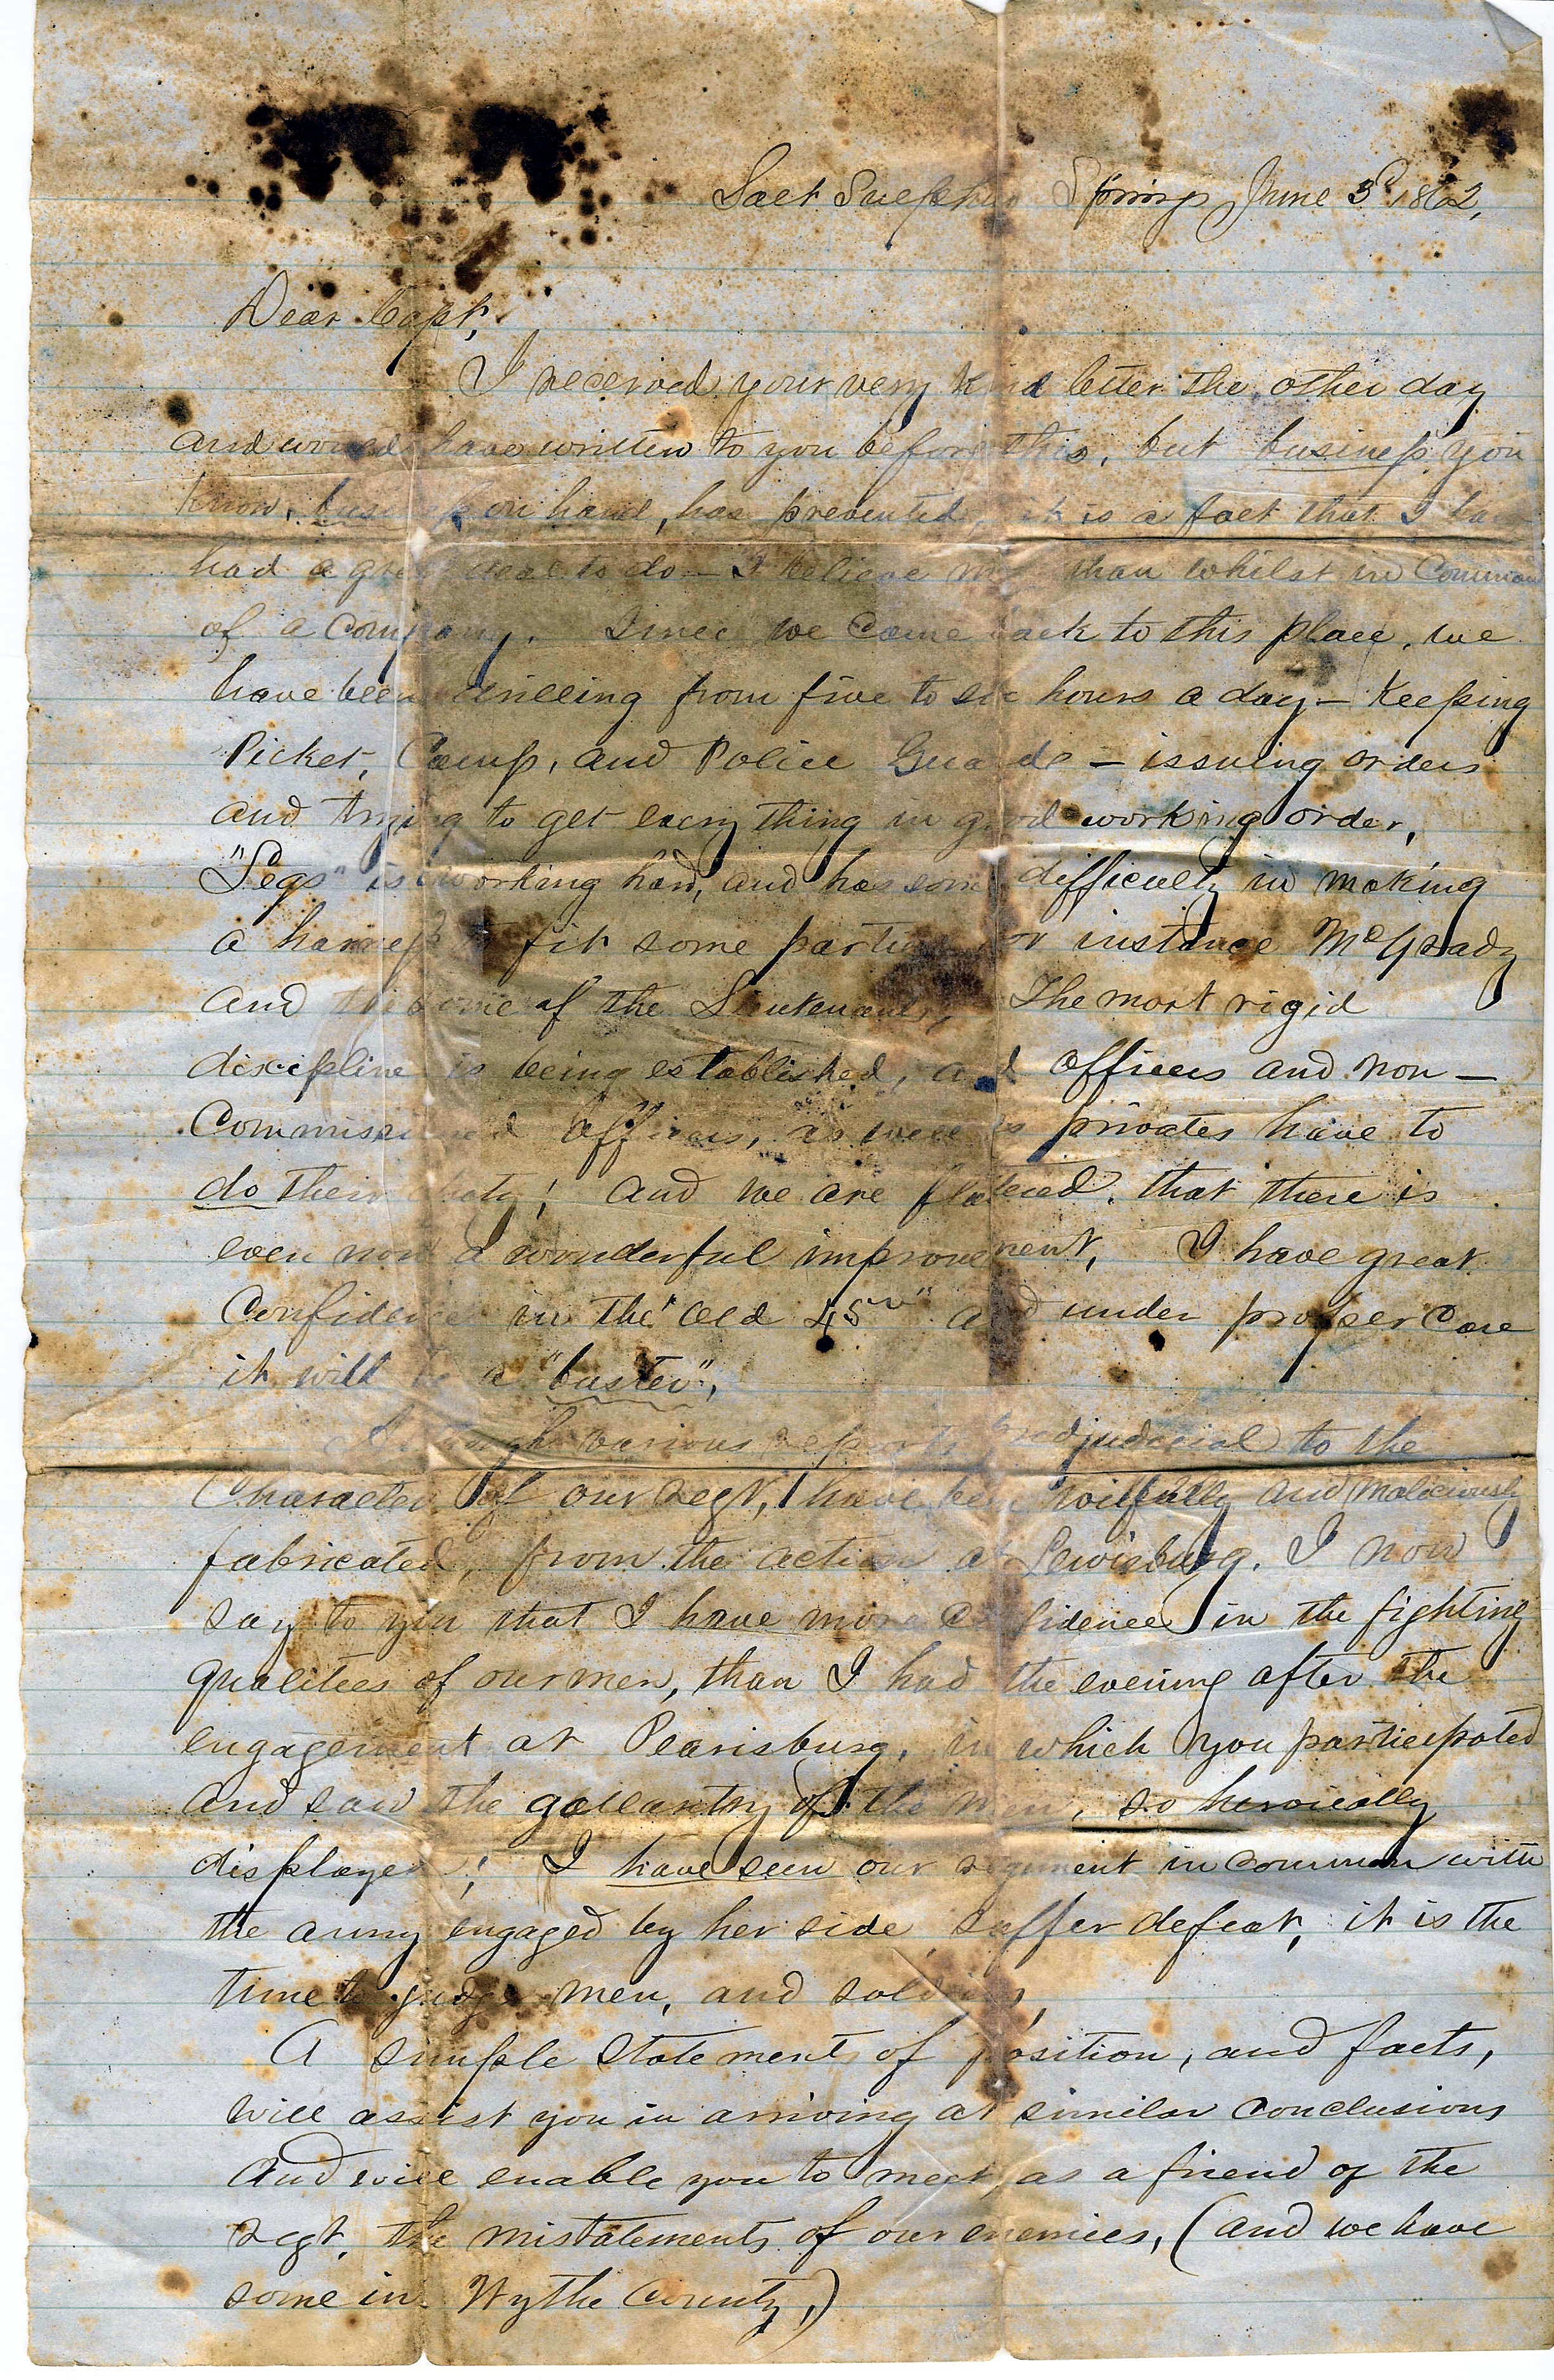 Salt Sulphur Springs June 3d 1862,
Dear Capt,
I received your very kind letter the other day
and would have written to you before this, but business you
know, business on hand, has prevented, it is a fact that I have
had a great deal to do — I believe more than whilst in Command
of a Company. Since we came back to this place, we
have been drilling from five to six hours a day — Keeping
Picket, Camp, and Police Guards — issuing orders
and trying to get every thing in good working order,
"Pegs" is working hard, and has some difficulty in making
a harness to fit some parties for instance McGrady
and some of the Lieutenants, The most rigid
discipline is being established, and officers and non —
Commissioned officers, as well as privates have to
do their duty! and we are flattered, that there is
even now a wonderful improvement, I have great
Confidence in the "old 45th" and under proper care
it will be a "buster",
Although various reports predjudicial to the
Character of our Regt, have been wilfully and maliciously
fabricated, from the action at Lewisburg, I now
say to you that I have more confidence in the fighting
qualities of our men, than I had the evening after the
engagement at Pearisburg, in which you participated
and saw the gallantry of the men, so heroically
displayed; I have seen our regiment in common with
the army engaged by her side, suffer defeat, it is the
time to judge men, and soldiers,
A simple statement of position, and facts,
will assist you in arriving at similar conclusions
and will enable you to meet, as a friend of the
Regt, the mistatements of our enemies, (and we have
some in Wythe County,)